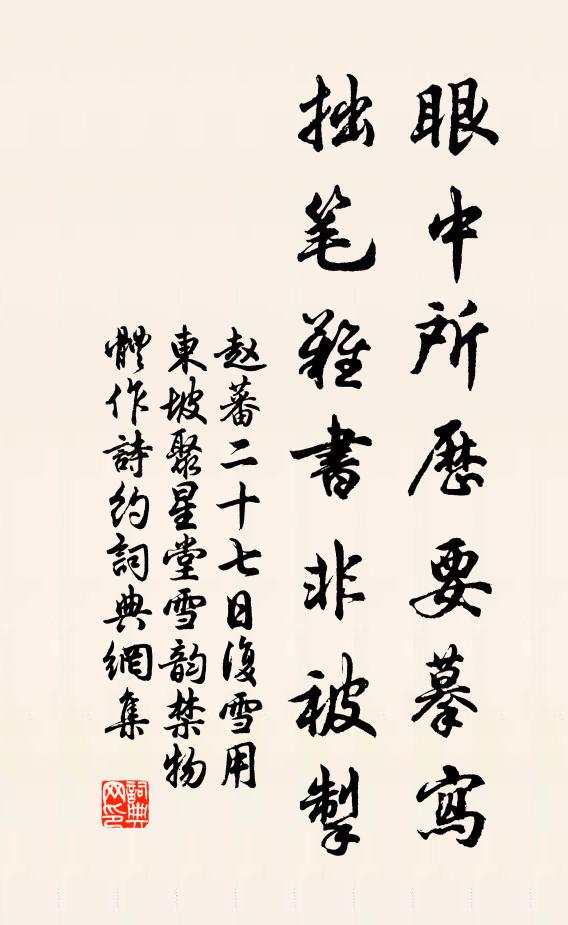 眼中所歷要摹寫
拙笔難書非被掣
赵蕃二十七日復雪用
東坡聚星堂雪韵禁物
體作詩約詞典網集
詞典
网印